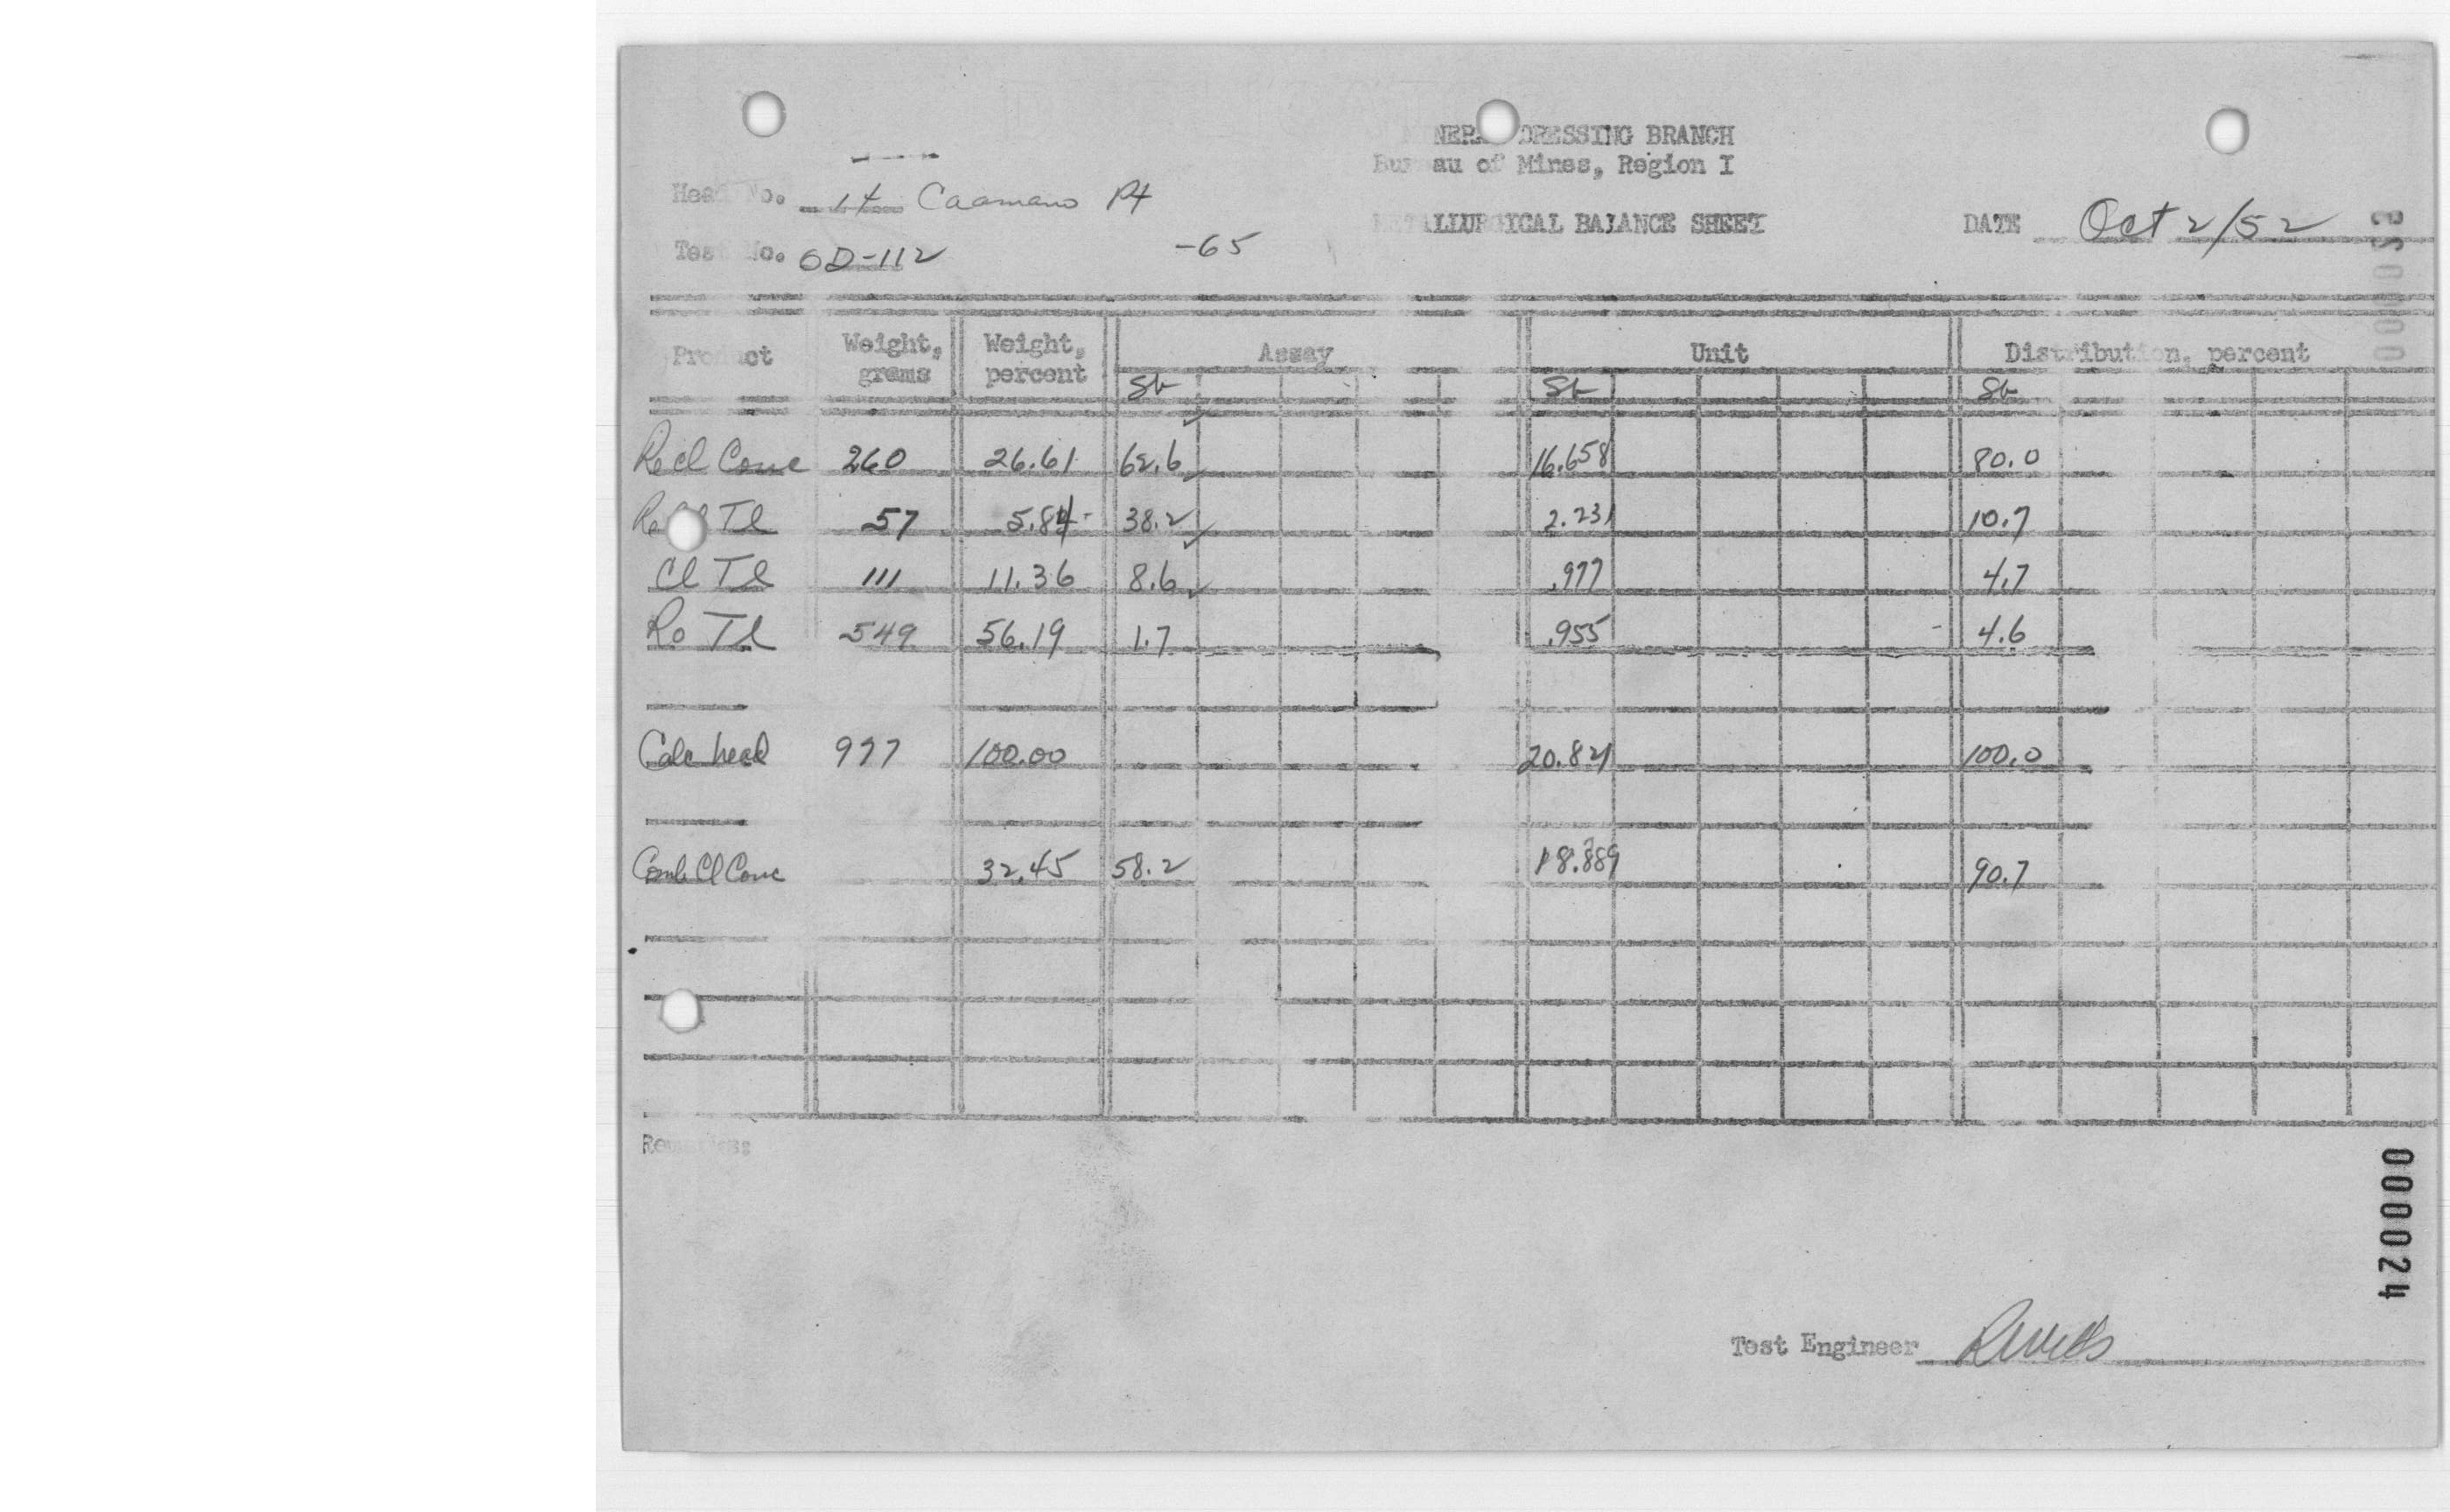 NERA DRESSING BRANCH
Bureau of Mines, Region I
Head No. 14 Caamano Pt
METALLURGICAL BALANCE SHEET DATE Oct 2/52
Test No. OD-112 -65
Product Weight, grams Weight, percent Assay Unit Distribution, percent
Sb Sb Sb
Recl Conc 260 26.61 62.6 16.658 80.0
Recl Tl 57 5.84 38.2 2.231 10.7
Cl Tl 111 11.36 8.6 .977 4.7
Ro Tl 549 56.19 1.7 .955 4.6
Calc head 977 100.00 20.821 100.0
Comb Cl Conc 32.45 58.2 18.889 90.7
Remarks:
Test Engineer
000024